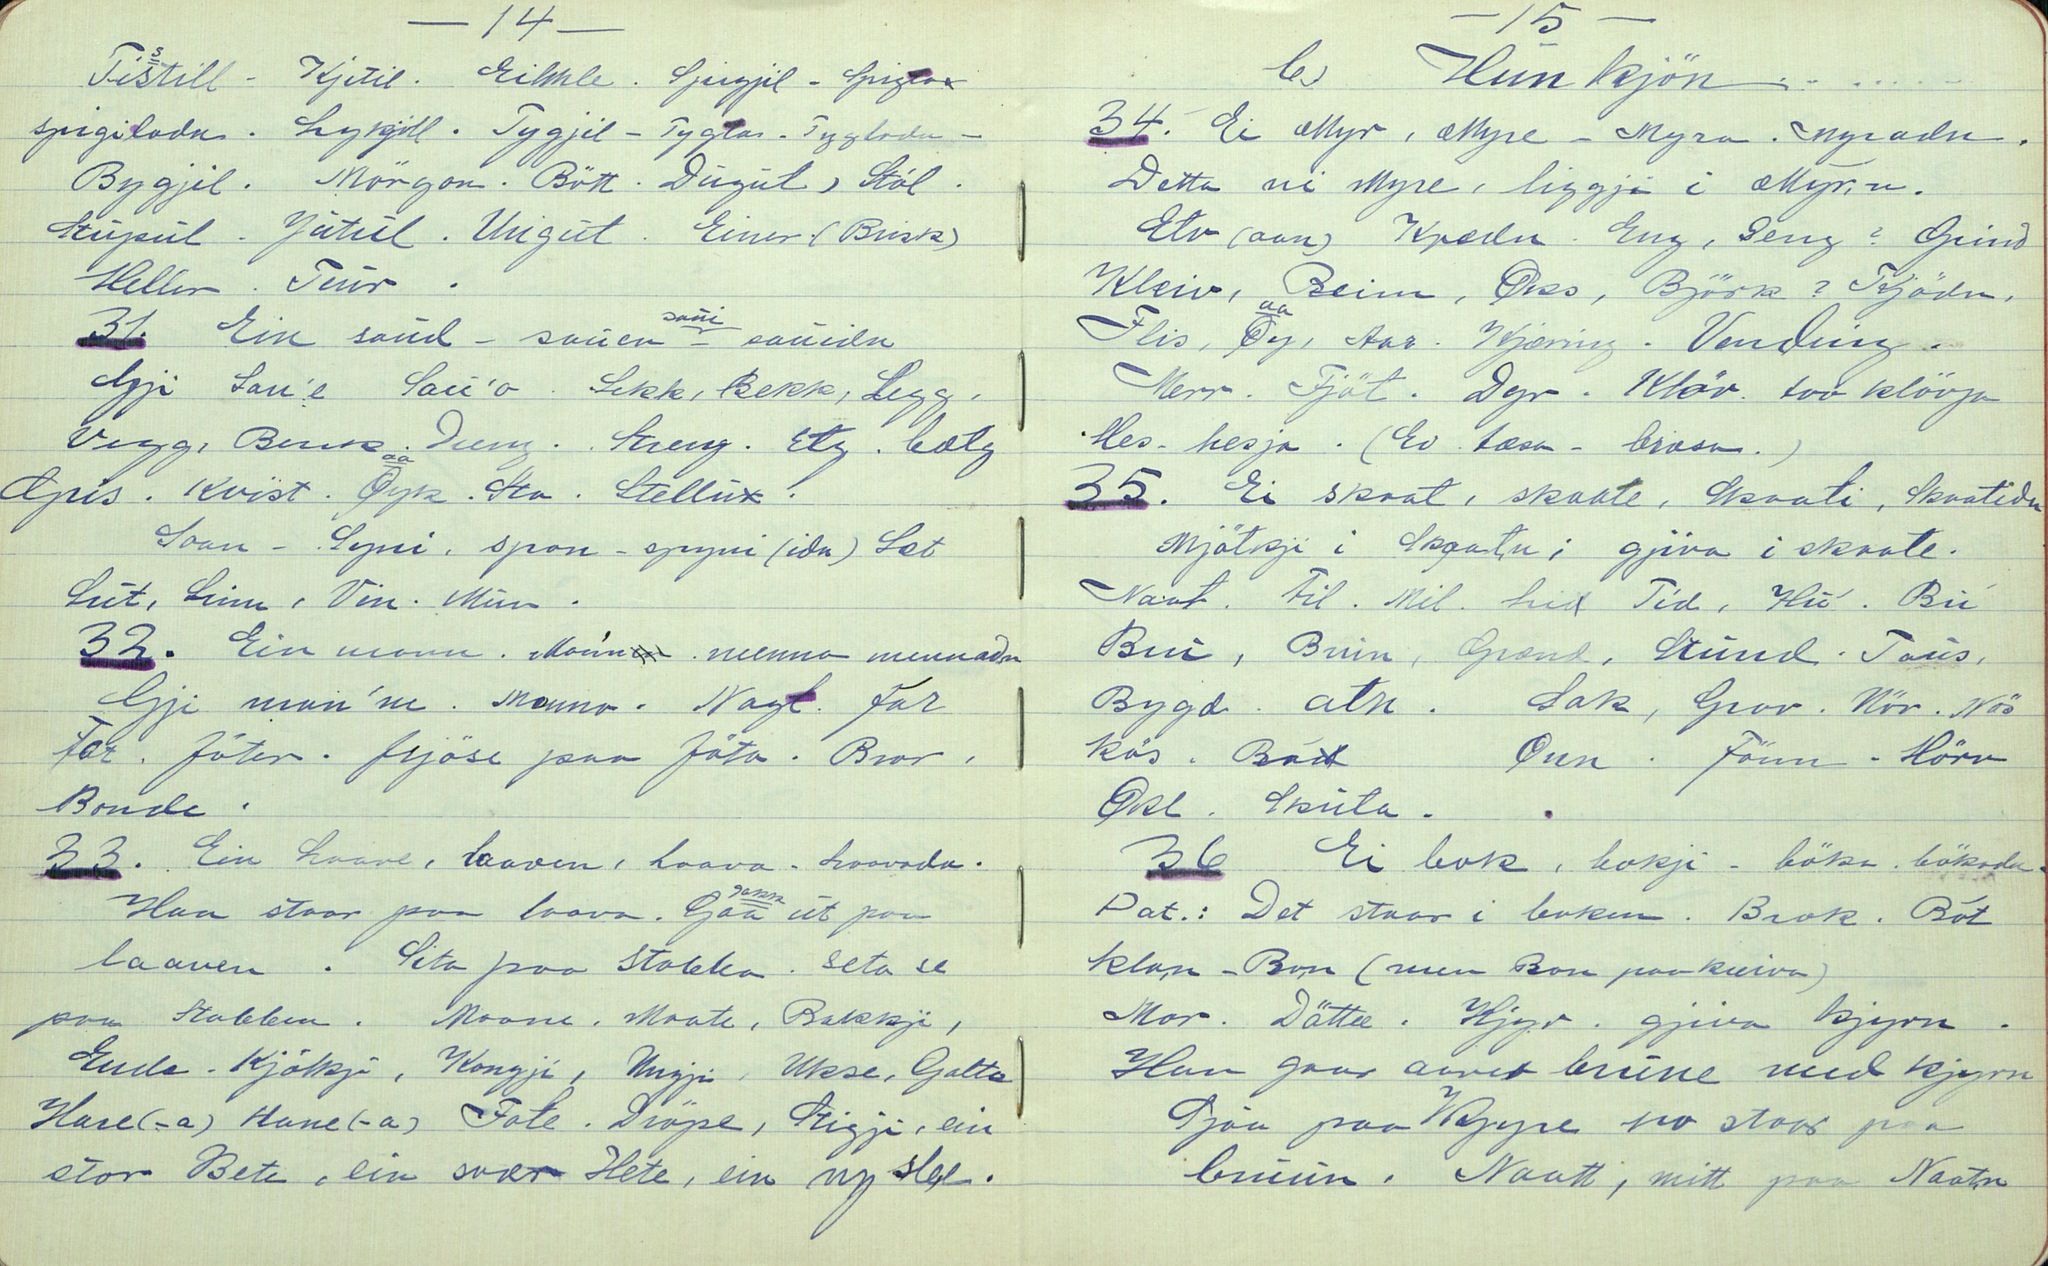 — 14 —
Tistill - Kjitil. Eikkle. Spigjil - Spiglar
spigiladn. Lykjill. Tygjil - Tyglar - Tygladn -
Bygjil. Mörgon. Bött. Dugul, Stól.
Stúpúl. Jútúl. Unigút. Einer (Brisk)
Heller. Teúr.
31. Ein saúd - saúen - saúi saúidn
Gji Saú'e Saú'o. Sekk, Bekk, Legg,
Vegg, Benk. Dreng. Streng. Elg. bælg
Gris. Kvist. Øyk. aa Sta.
Saan - Syni, spon - spyni (idn) Let
Lút, Linn, Vin. Mún.
32. Ein mann. Mann menna mennadn
Gji man'ne. Manno. Nagl. Far
Fet. Föter. frjöse paa föto. Bror.
Bonde.
33. Ein laave, laaven, laava - laavadn.
Han staar paa laava. Gaa út paa
laaven. Sita paa Stabba. seta se
paa Stabben. Maane. Maate, Bakkji,
Ende. Kjölkji, Kongji, Ungji, Ukse, Galte
Hare (-a) Hane (-a) Fole. Dröpe, Stigji, ein
stor Bete, ein svær Hete, ein ny Sle.
— 15 —
b) Hunkjön
34. Ei Myr, Myre - Myra. Myradn.
Detta ni Myre, liggja i Myr,n.
Elv (aan) Kvedn. Eng, Seng? Grind
Kleiv, Reim, Øks, Björk? Tjödn,
Flis, Øy, aa Aar. Kjæring. Vending.
Merr. Fjöl. Dyr. Klöv. too klövja
Hes - hesja.
35. Ei skaal, skaale, Skaali, Skaalidn
Mjölkji i Skaal,n; gjiva i skaale.
Naal. Fil. Mil. Tíd, Hú. Bú
Brú, Brún, Grend, Stúnd. Taús,
Bygd. aln. Sak, Grav. Nör. Nös
kös. Onn. Fönn - Hörn
Øksl. Skúla.
36 Ei bok, bokji - böka. bökadn.
Dat.: Det staar i boken. Brok. Bót
klo,n - Bon (men Bon paa kvive)
Mor. Dötte. Kjyr. gjiva kjyrn.
Han gaar aaver brúne med kjyrn
Sjaa paa Kjyre no staar paa
brúún. Naatt, mitt paa Naatn